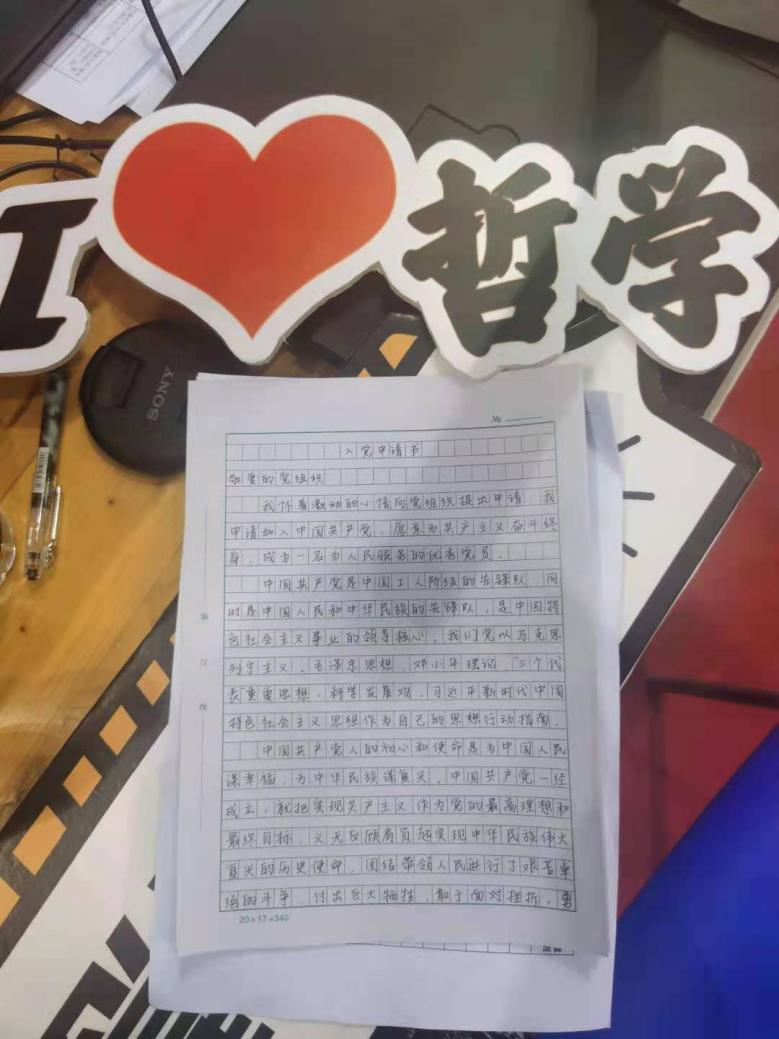 I
哲学
SONY
No
入党申请书
敬爱的党组织
我怀着激动的心情向党组织提出申请 我
申请加入中国共产党，愿意为共产主义奋斗终
身，成为一名为人民服务的优秀党员。
中国共产党是中国工人阶级的先锋队 同
时是中国人民和中华民族的先锋队，是中国特
色社会主义事业的领导核心。我们党以马克思
列宁主义、毛泽东思想、邓小平理论、“三个代
表”重要思想、科学发展观、习近平新时代中国
特色社会主义思想作为自己的思想行动指南。
中国共产党人的初心和使命是为中国人民
谋幸福，为中华民族谋复兴。中国共产党一经
成立，就把实现共产主义作为党的最高理想和
最终目标，义无反顾肩负起实现中华民族伟大
复兴的历史使命，团结带领人民进行了艰苦卓
绝的斗争，付出巨大牺牲，敢于面对挫折，勇
20×17=340
装
订
线